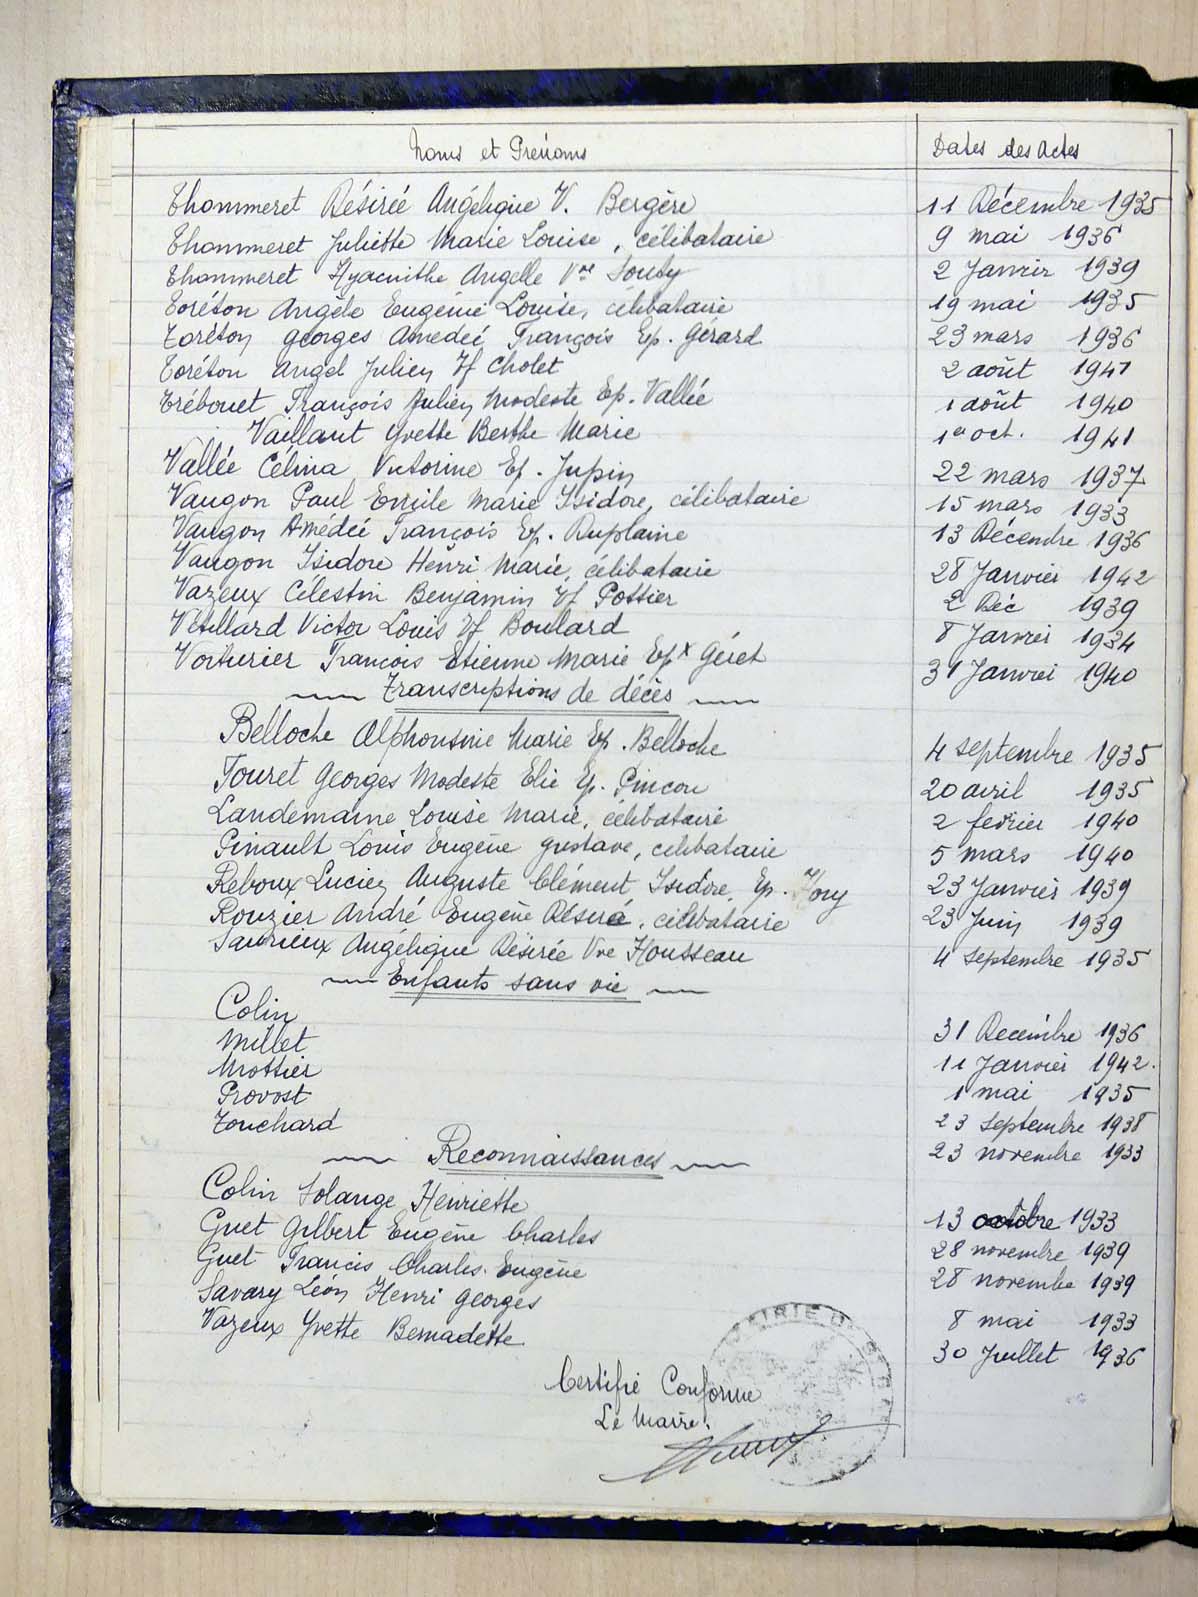 Noms et Prénoms Dates des Actes
Thommeret Désirée Angélique V. Bergère 11 Décembre 1935
Thommeret Juliette Marie Louise, célibataire 9 mai 1936
Thommeret Hyacinthe Angelle Vve Souty 2 Janvier 1939
Toréton Angèle Eugénie Louise, célibataire 19 mai 1935
Toréton Georges Amedeé François Ep. Gérard 23 mars 1936
Toréton Angel Julien Vf Cholet 2 août 1941
Trébouet François Julien Modeste Ep. Vallée 1 août 1940
Vaillant Yvette Berthe Marie 1er oct. 1941
Vallée Célina Victorine Ep. Jupin 22 mars 1937
Vaugon Paul Emile Marie Isidore, célibataire 15 mars 1933
Vaugon Amédeé François Ep. Duplaine 13 Décembre 1936
Vaugon Isidore Henri Marie, célibataire 28 Janvier 1942
Vazeux Célestin Benjamin Vf Pottier 2 Déc 1939
Vétillard Victor Louis Vf Boulard 8 Janvier 1934
Voiturier François Etienne Marie Epx Géret 31 Janvier 1940
Transcriptions de décès
Belloche Alphonsine Marie Ep. Belloche 4 septembre 1935
Touret Georges Modeste Elie Ep. Pinçon 20 avril 1935
Landemaine Louise Marie, célibataire 2 fevrier 1940
Pinault Louis Eugène Gustave, celibataire 5 mars 1940
Reboux Lucien Auguste Clément Isidore, Ep. Hory 23 Janvier 1939
Rouzier André Eugène Désiré, célibataire 23 Juin 1939
Saurieux Angélique Désirée Vve Housseau 4 septembre 1935
Enfants sans vie
Colin 31 Decembre 1936
Millet 11 Janvier 1942.
Mottier 1 mai 1935
Provost 23 septembre 1938
Touchard 23 novembre 1933
Reconnaissances
Colin Solange Henriette 13 octobre 1933
Guet Gilbert Eugène Charles 28 novembre 1939
Guet Francis Charles Eugène 28 novembre 1939
Savary Léon Henri Georges 8 mai 1933
Vazeux Yvette Bernadette 30 Juillet 1936
MAIRIE DE
Certifié Conforme
Le Maire.